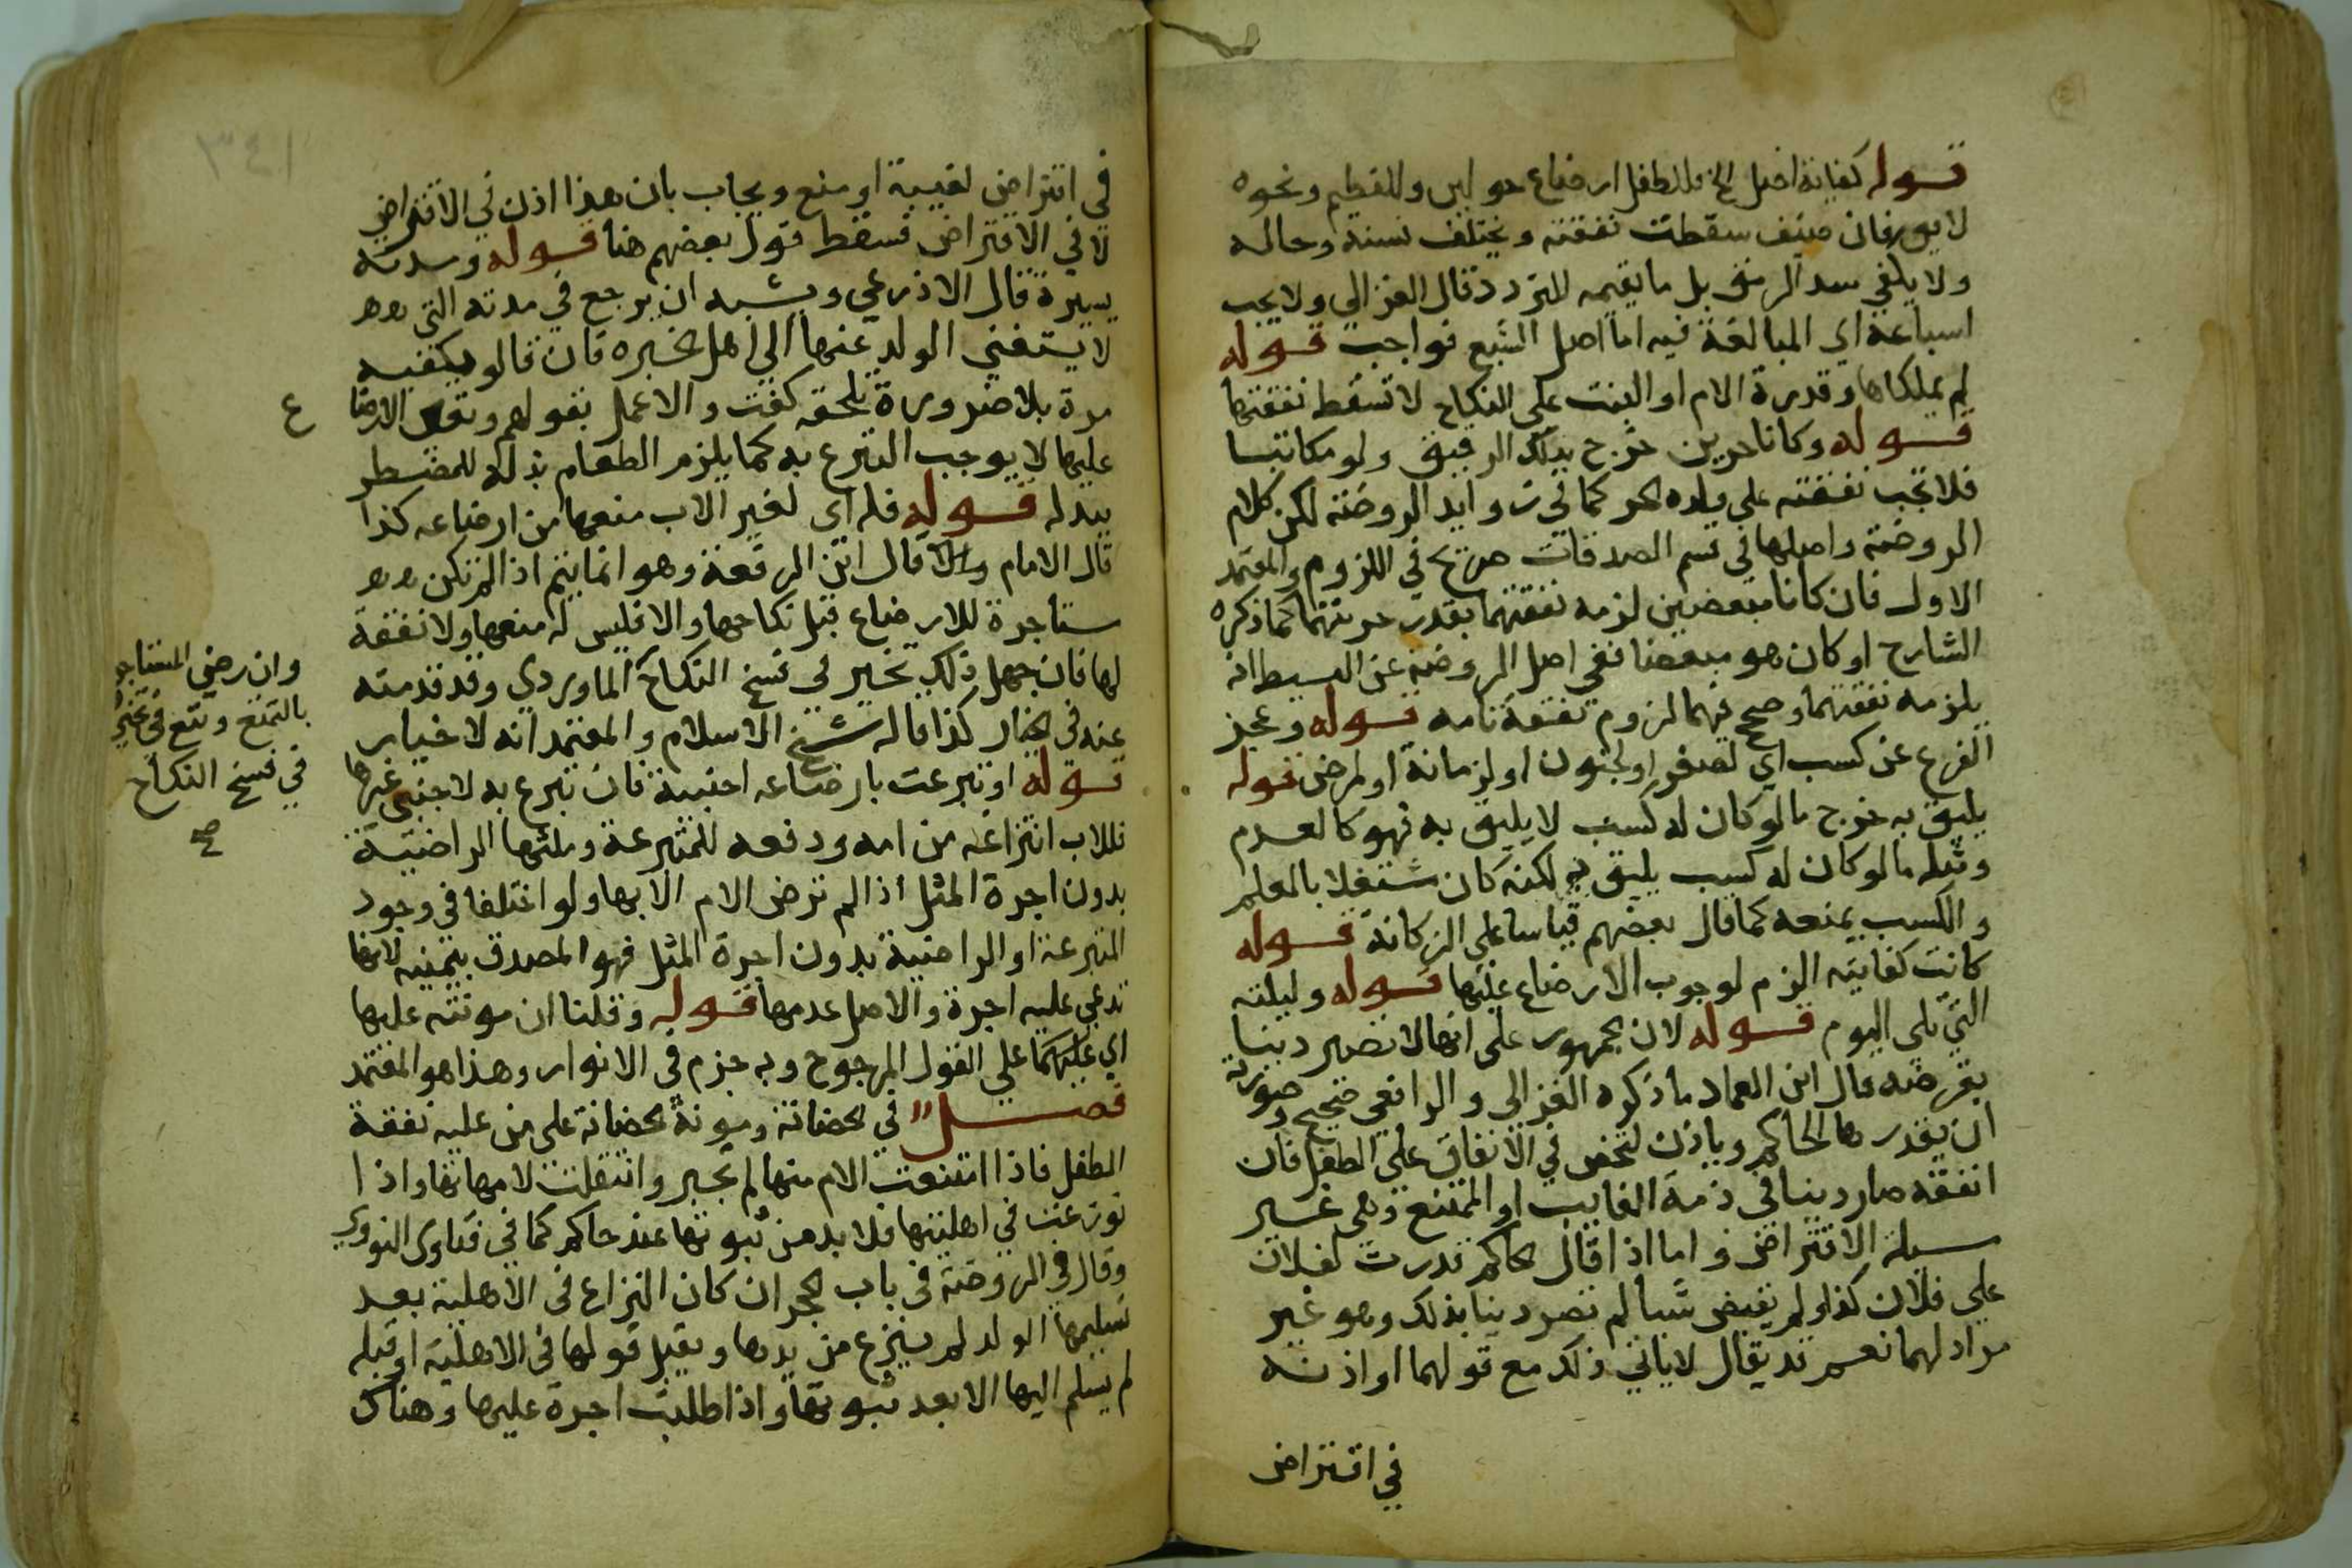 قوله كفاية اصل الخ فللطفل ارضاع حولين وللفطيم ونحوه
لايق به فان ضيف سقطت نفقته ويختلف بسنه وحاله
ولا يكفي سد الرمق بل ما يقيمه للتردد قال الغزالي ولا يجب
اسباعه اي المبالغة فيه اما اصل الشبع فواجب قوله
لم يملكاها وقدرة الام او البنت على النكاح لا تسقط نفقتها
قوله وكانا حرين خرج بذلك الرقيق ولو مكاتبا
فلا تجب نفقته على ولده الحر كما في زوايد الروضة لكن كلام
الروضة واصلها في قسم الصدقات صريح في اللزوم والمعتمد
الاول فان كانا مبعضين لزمه نفقتهما بقدر حريتهما كما ذكره
الشارح او كان هو مبعضا ففي اصل الروضة عن البسيط انه
يلزمه نفقتهما وصحح فيهما لزوم نفقة تامه قوله وعجز
الفرع عن كسب اي لصغر او لجنون او لزمانة او لمرض قوله
يليق به خرج ما لو كان له كسب لا يليق به فهو كالعدم
ومثله ما لو كان له كسب يليق به لكنه كان مشتغلا بالعلم
والكسب يمنعه كما قال بعضهم قياسا على الزكاة قوله
كانت كفايته الزم لوجوب الارضاع عليها قوله وليلته
التي تلى اليوم قوله لان الجمهور على انها لا تصير دينا
بقرضه قال ابن العماد ما ذكره الغزالي والرافعي صحيح وصورته
ان يقدرها الحاكم وياذن لشخص في الانفاق على الطفل فان
انفقه صار دينا في ذمة الغايب او الممتنع وهي غير
مسيلة الاقتراض واما اذا قال الحاكم قدرت لفلان
على فلان كذا ولم يقبض شيا لم تصر دينا بذلك وهو غير
مراد لهما نعم قد يقال لا ياتي ذلك مع قولهما او اذنه
في اقتراض
في اقتراض لغيبة او منع ويجاب بان هذا اذن في الاقتراض
لا في الاقتراض فسقط قول بعضهم هنا قوله ومدته
يسيرة قال الاذرعي ويشبه ان يرجع في مدته التي
لا يستغني الولد عنها الى اهل الخبره فان قالوا يكفيه
مرة بلا ضرورة تلحقه كفت والا عمل بقولهم
عليها لا يوجب التبرع به كما يلزم الطعام بذله للمضطر
ببدله قوله فله اي لغير الاب منعها من ارضاعه كذا
قال الامام قال ابن الرفعة وهو انما يتم اذا لم تكن
مستاجرة للارضاع قبل نكاحها والا فليس له منعها ولا نفقة
لها فان جهل ذلك تخير في فسخ النكاح الماوردي وقد قدمته
عنه في الخيار كذا قاله شيخ الاسلام والمعتمد انه لا خيار
قوله او تبرعت بارضاعه اجنبية فان تبرع به لاجنبي غيرها
فللاب انتزاعه من امه ودفعه للمتبرعة ومثلها الراضية
بدون اجرة المثل اذا لم ترض الام الا بها ولو اختلفا في وجود
المتبرعة او الراضية بدون اجرة المثل فهو المصدق بيمينه لانها
تدعي عليه اجرة والاصل عدمها قوله وقلنا ان مونته عليها
اي عليهما على القول المرجوح وبه جزم في الانوار وهذا هو المعتمد
فصل في الحضانة ومونة الحضانة على من عليه نفقة
الطفل فاذا امتنعت الام منها لم تجبر وانتقلت لامهاتها واذا
نوزعت في اهليتها فلا بد من ثبوتها عند حاكم كما في فتاوى النووي
وقال في الروضة في باب الحجر ان كان النزاع في الاهلية بعد
تسليمها الولد لم ينزع من يدها ويقبل قولها في الاهلية او قبله
لم يسلم اليها الا بعد ثبوتها واذا طلبت اجرة عليها وهناك
ع
وان رضي المستاجر
بالتمتع
في فسخ النكاح
صح
٣٤١